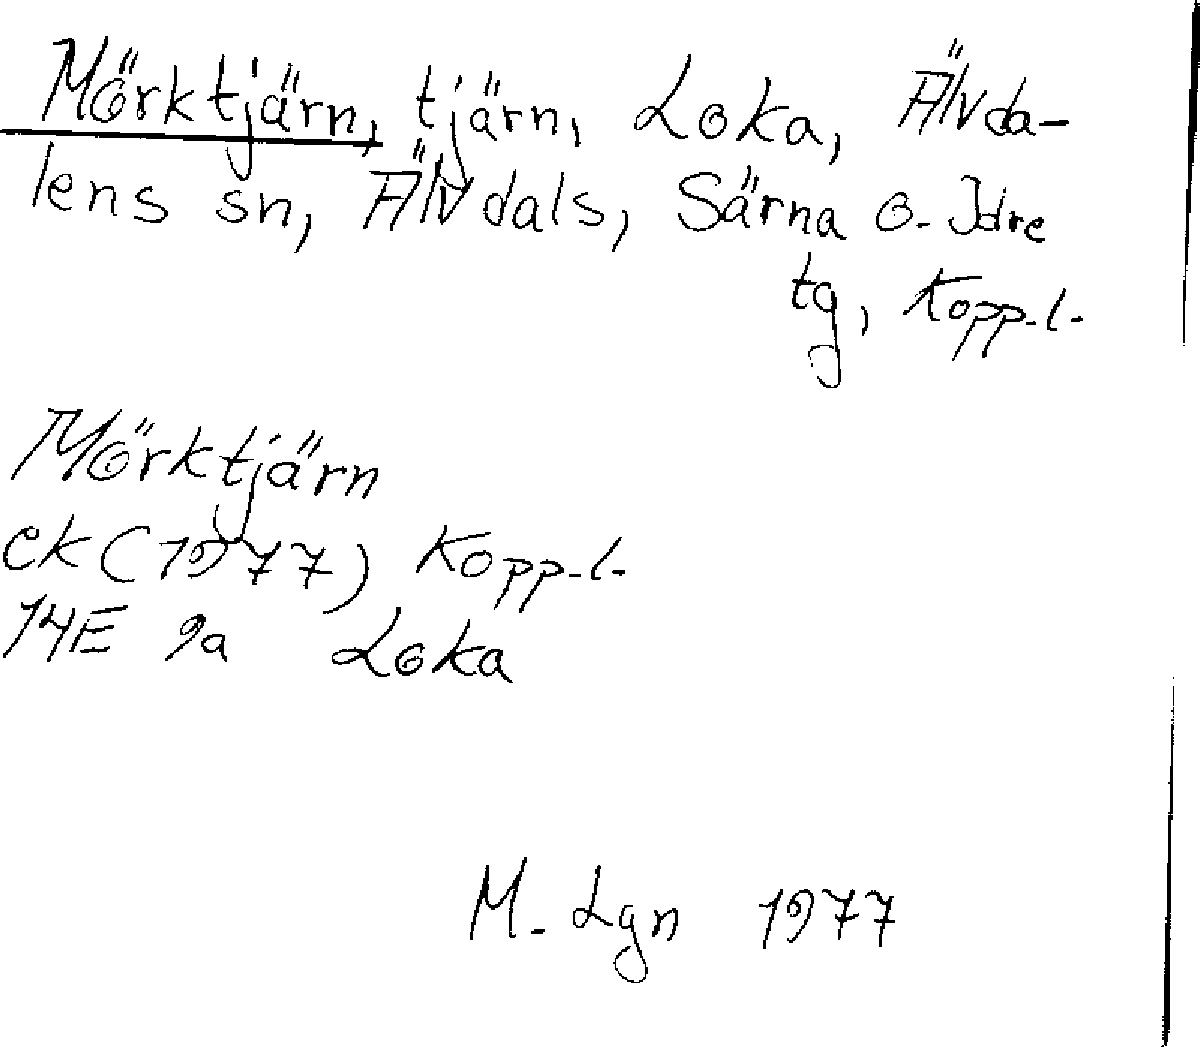 Mörktjärn, tjärn, Loka, Älvda-
lens sn, Älvdals, Särna o. Idre
tg, Kopp.l.
Mörktjärn
ek (1977) Kopp.l.
14E 9a Loka
M. Lgn 1977